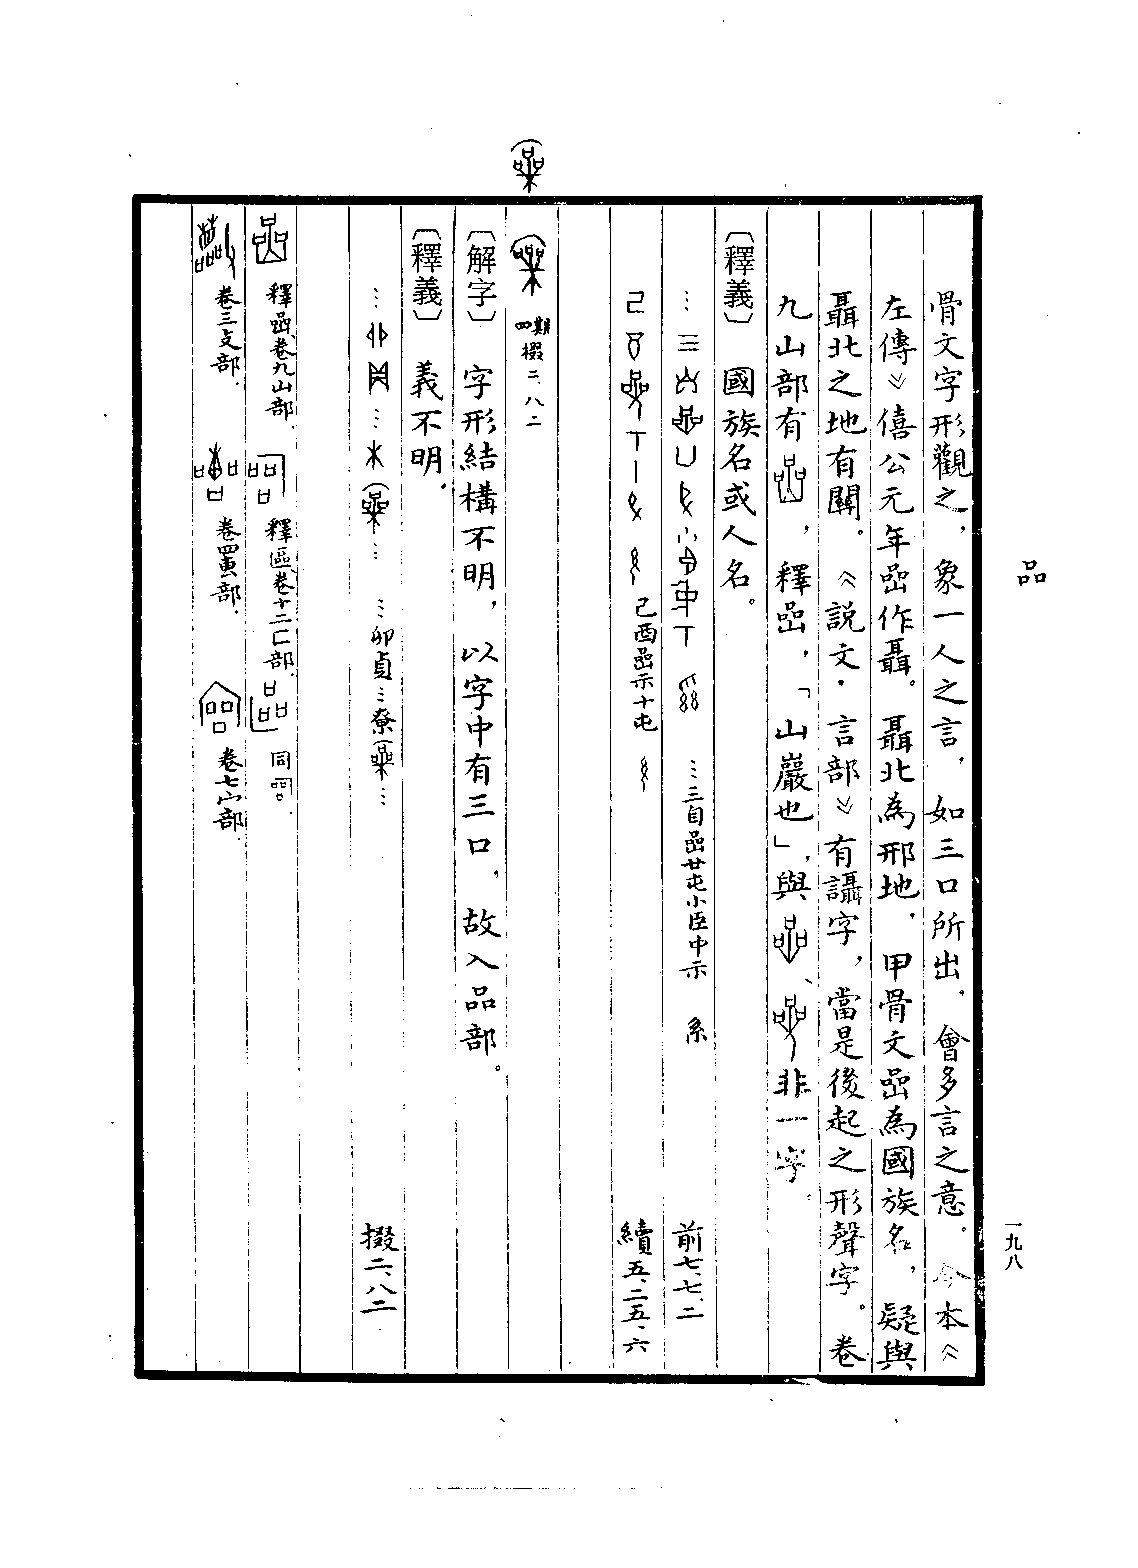 品
一九八
骨文字形觀之，象一人之言，如三口所出，會多言之意。今本《
左傳》僖公元年嵒作聶。聶北為邢地，甲骨文嵒為國族名，疑與
聶北之地有關。《說文·言部》有讘字，當是後起之形聲字。卷
九山部有，釋嵒，「山巖也」，與、非一字。
〔釋義〕 國族名或人名。
…三𠂤嵒廿屯小臣中示 系 前七、七、二
己酉嵒示十屯 續五、二五、六
四期 掇二、八二
〔解字〕 字形結構不明，以字中有三口，故入品部。
〔釋義〕 義不明。
…卯貞…尞… 掇二、八二
釋嵒卷九山部. 釋區卷十二匸部. 同.
卷三攴部. 卷四部. 卷七宀部.